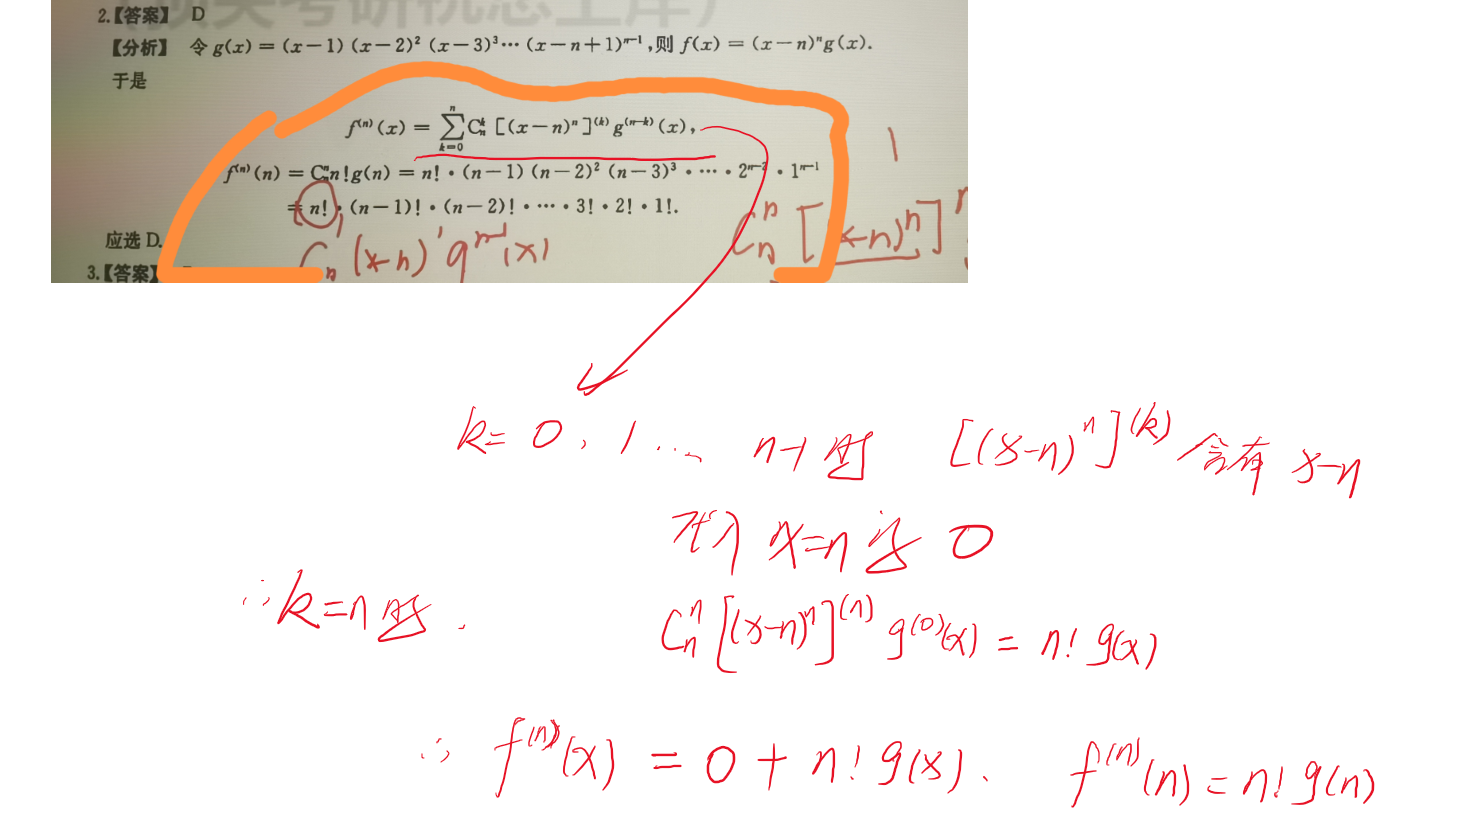 2.【答案】 D
【分析】 令 g(x) = (x-1) (x-2)² (x-3)³⋯ (x-n+1)ⁿ⁻¹,则 f(x) = (x-n)ⁿg(x).
于是
f⁽ⁿ⁾(x) = ∑_{k=0}^{n} Cₙᵏ [(x-n)ⁿ]⁽ᵏ⁾ g⁽ⁿ⁻ᵏ⁾(x),
f⁽ⁿ⁾(n) = Cₙⁿn!g(n) = n!·(n-1) (n-2)² (n-3)³·⋯·2ⁿ⁻²·1ⁿ⁻¹
= n!·(n-1)!·(n-2)!·⋯·3!·2!·1!.
应选 D.
Cₙ¹ (x-n)' gⁿ⁻¹(x)
Cₙⁿ [(x-n)ⁿ]ⁿ
3.【答案】
k= 0, 1 ⋯ n-1 时 [(x-n)ⁿ]⁽ᵏ⁾ 含有 x-n
代入 x=n 为 0
∴ k=n 时. Cₙⁿ [(x-n)ⁿ]⁽ⁿ⁾ g⁽⁰⁾(x) = n! g(x)
∴ f⁽ⁿ⁾(x) = 0 + n! g(x). f⁽ⁿ⁾(n) = n! g(n)